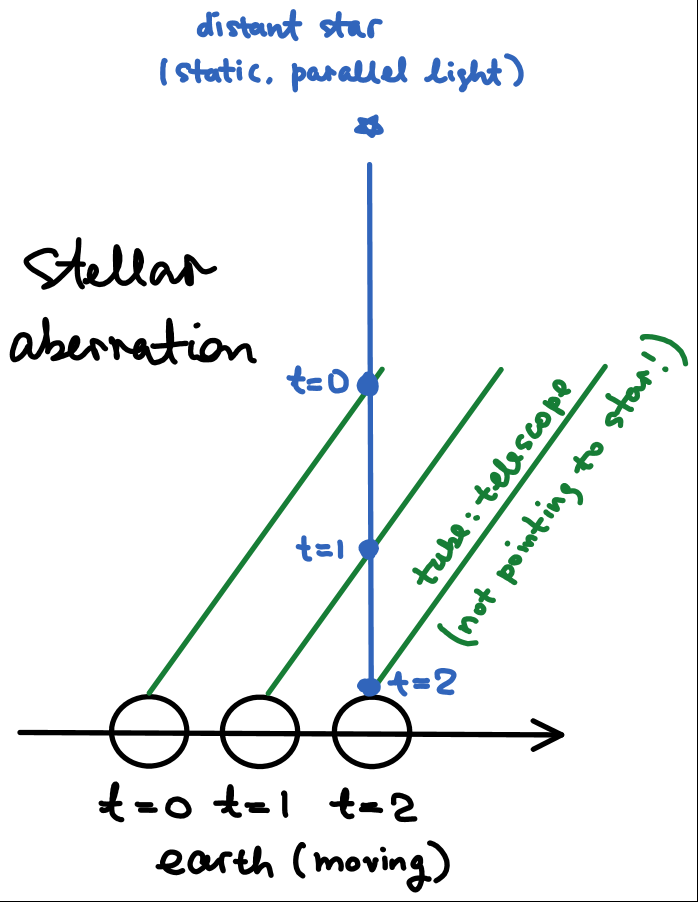 distant star
(static, parallel light)
Stellar
aberration
t=0
t=1
t=2
tube: telescope
(not pointing to star!)
t=0 t=1 t=2
earth (moving)